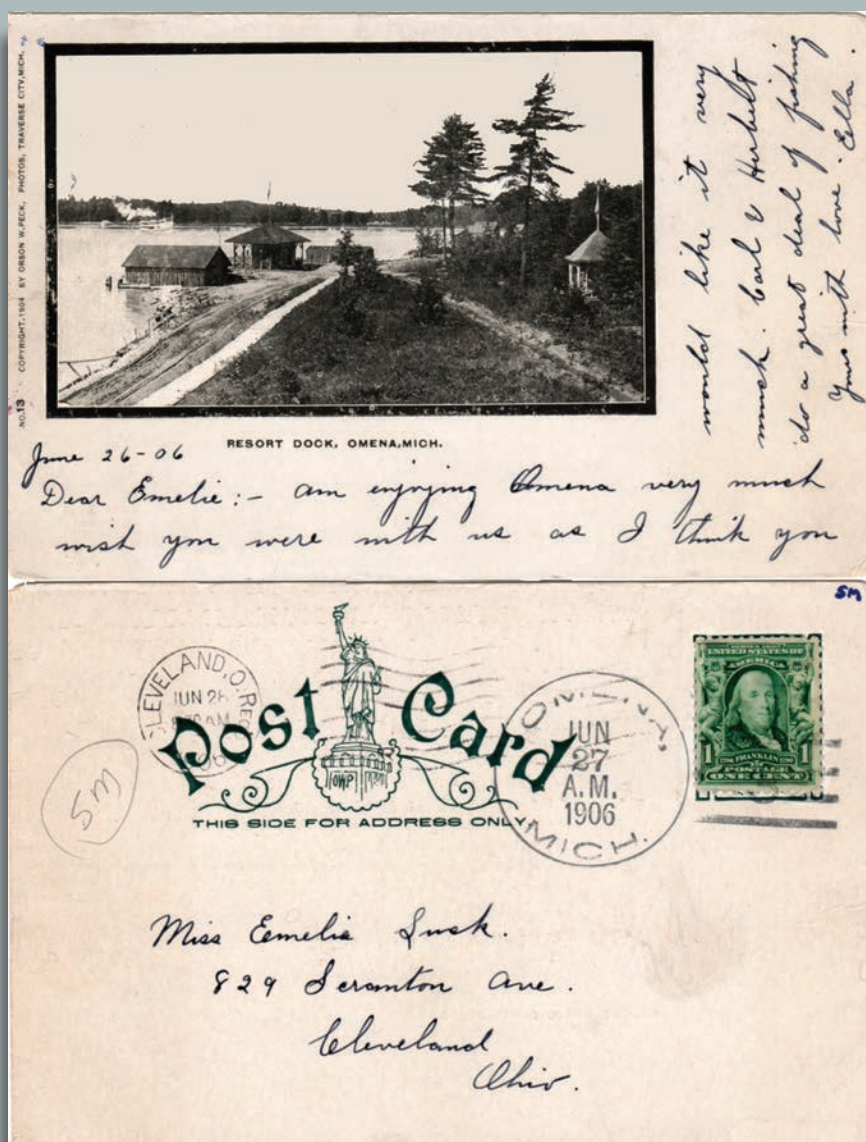 NO.13 COPYRIGHT, 1904 BY ORSON W. PECK, PHOTOS, TRAVERSE CITY, MICH.
RESORT DOCK, OMENA, MICH.
June 26-06
Dear Emelie:- am enjoying Omena very much
wish you were with us as I think you
would like it very
much. Carl & Herbert
do a great deal of fishing
Yours with love. Ella.
SM
CLEVELAND, O. REC'D
JUN 28
AM
06
Post Card
OWP
THIS SIDE FOR ADDRESS ONLY
OMENA,
JUN
27
A.M.
1906
MICH.
UNITED STATES OF
AMERICA
1 FRANKLIN 1
POSTAGE
ONE CENT
SM
Miss Emelie Lusk.
829 Scranton Ave.
Cleveland
Ohio.